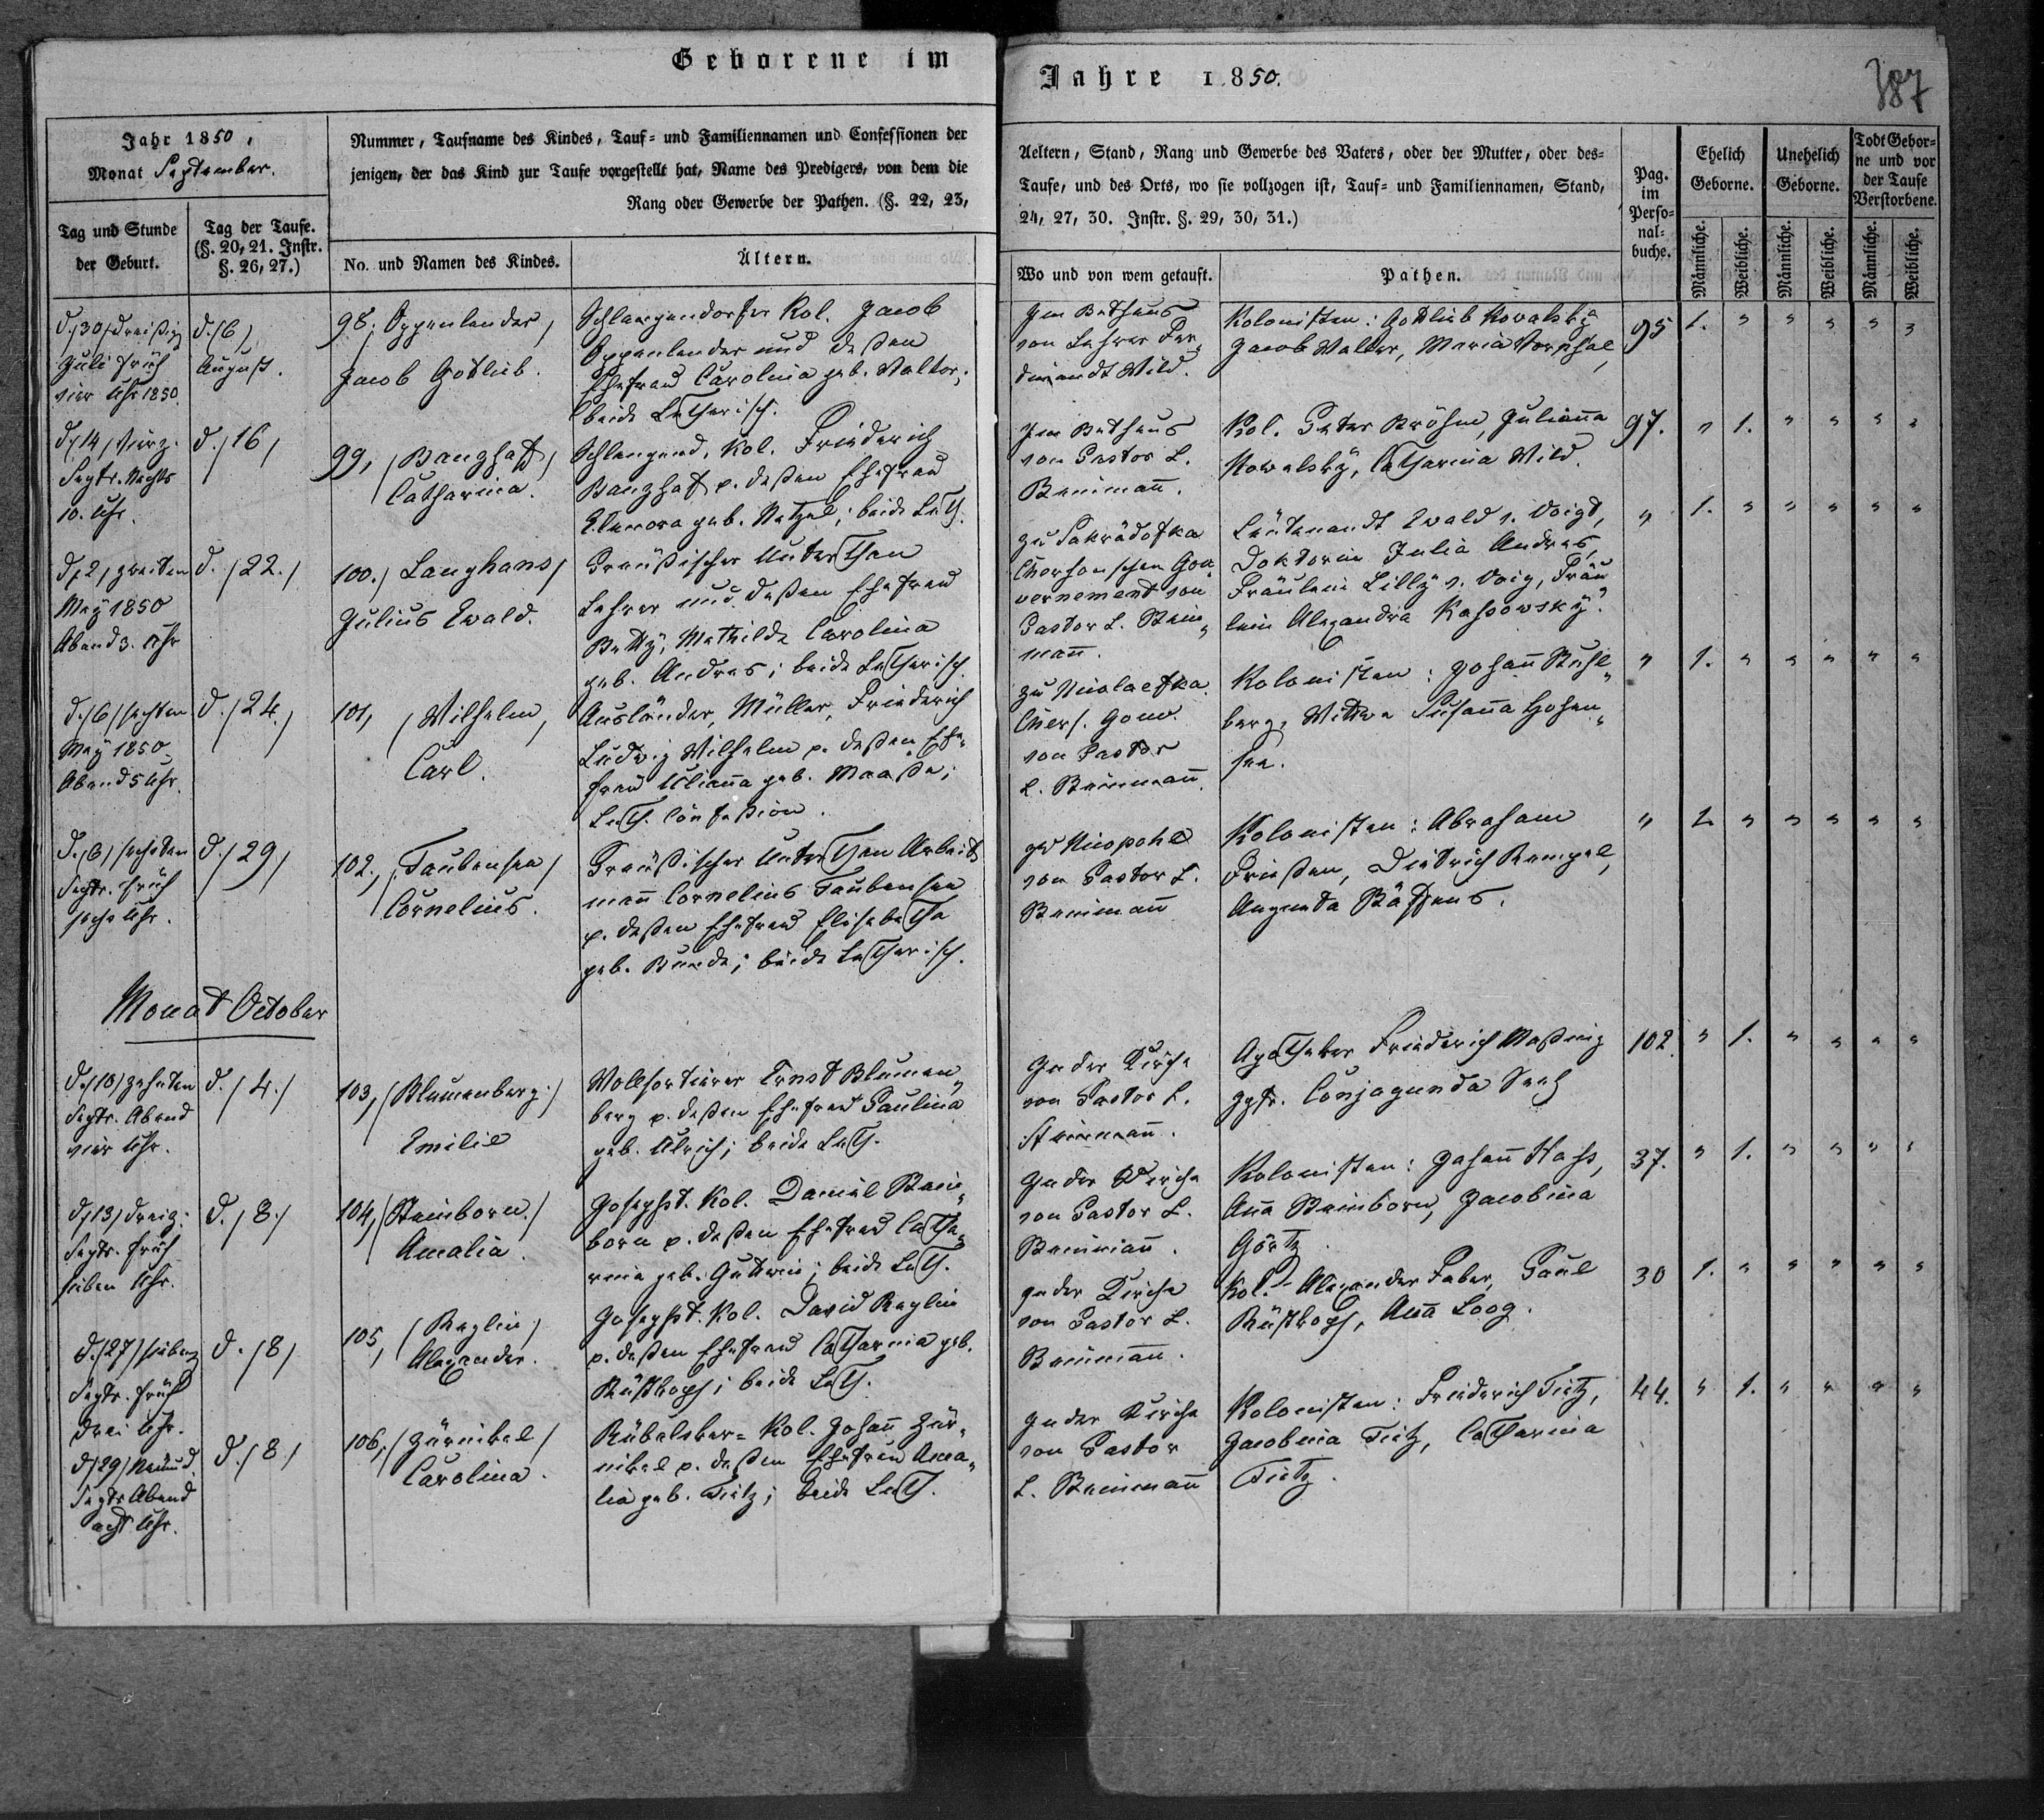 Geborene im
Jahre 1850.
387
Jahr 1850,
Monat September.
Nummer, Taufname des Kindes, Tauf- und Familiennamen und Confessionen der
jenigen, der das Kind zur Taufe vorgestellt hat, Name des Predigers, von dem die
Rang oder Gewerbe der Pathen. (§. 22, 23,
Aeltern, Stand, Rang und Gewerbe des Vaters, oder der Mutter, oder des-
Taufe, und des Orts, wo sie vollzogen ist, Tauf- und Familiennamen, Stand,
24, 27, 30. Instr. §. 29, 30, 31.)
Tag und Stunde
der Geburt.
Tag der Taufe.
(§. 20, 21. Instr.
§. 26, 27.)
No. und Namen des Kindes.
Ältern.
Wo und von wem getauft.
Pathen.
Pag.
im
Perso-
nal-
buche.
Ehelich
Geborne.
Unehelich
Geborne.
Todt Gebor-
ne und vor
der Taufe
Verstorbene.
Männliche.
Weibliche.
Männliche.
Weibliche.
Männliche.
Weibliche.
d./30/dreißig
Juli früh
vier Uhr 1850.
d./6/
August.
98, Oppenlender,
Jacob Gottlieb.
Schlangendorfer Kol. Jacob
Oppenlender und deßen
Ehefrau Carolina geb. Walter;
beide Lutherisch.
Im Bethaus
von Lehrer Fer-
dinandt Wild.
Kolonisten: Gottlieb Kowalsky
Jacob Walter, Maria
95 1. " " " " "
d./14/vierz.
Septr. Nachts
10. Uhr.
d./16/
99, /Banzhaf/
Catharina.
Schlangend. Kol. Friederich
Banzhaf p. deßen Ehefrau
Elenora geb. Natzel; beide Luth.
Im Bethaus
von Pastor L.
Steinmañ.
Kol. Peter Kröhn, Juliaña
Kowalsky, Catharina Wild.
97. " 1. " " " "
d./2/zweiten
May 1850
Abend 3. Uhr
d./22./
100./ Langhans/
Julius Ewald.
Preußischer Unterthan
Lehrer und deßen Ehefrau
Betty, Mathilde Carolina
geb. Andres; beide Lutherisch.
zu Sakrädofka
Chersonschen Gou-
vernement von
Pastor L. Stein-
mañ.
Leutenandt Ewald v. Voigt,
Doktorin Julia Andres,
Fräulein Lilly v. Voig, Fräu
lein Alexandra
" 1. " " " " "
d./6/sechsten
May 1850
Abend 5 Uhr.
d./24./
101, /Wilhelm,
Carl.
Ausländer, Müller, Friederich
Ludwig Wilhelm p. deßen Ehe-
frau Uliaña geb. Maaße;
Luth. Confeßion.
zu Nicolaefka
Chers. Gouv.
von Pastor
L. Steinmañ.
Kolonisten: Johañ Stuhl-
berg, Wittwe Susaña Hohen-
see.
" 1. " " " " "
d./6/sechsten
Septr. früh
sechs Uhr.
d./29/
102, /Taubensee/
Cornelius.
Preußischer Unterthan Arbeits
mañ Cornelius Taubensee
p. deßen Ehefrau Elisabetha
geb. Bunde; beide Lutherisch.
zu Nicopohl
von Pastor L.
Steinmañ
Kolonisten: Abraham
Frießen, Dietrich Rempel,
Aganeta
" 1. " " " " "
Monat October
d./10/zehnten
Septr. Abend
vier Uhr.
d./4./
103, /Blumenberg./
Emilie
Wollsortierer Ernst Blumen-
berg p. deßen Ehefrau Paulina
geb. Ulrich; beide Luth.
In der Kirche
von Pastor L.
Steinmañ.
Apotheker Friederich
Jgfr.
102. " 1. " " " "
d./13/dreiz.
Septr. früh
sieben Uhr.
d./8./
104, /Steinborn./
Amalia.
Josephst. Kol. Daniel Stein-
born p. deßen Ehefrau Catha-
rina geb. Guttwin; beide Luth.
In der Kirche
von Pastor L.
Steinmañ.
Kolonisten: Johañ Hass,
Aña Steinborn, Jacobina
Görtz.
37. " 1. " " " "
d./27/siebenz
Septr. früh
drei Uhr.
d./8/
105, /Reglin/
Alexander.
Josephst. Kol. David Reglin
p. deßen Ehefrau Catharina geb.
Rüstkopf; beide Luth.
In der Kirche
von Pastor L.
Steinmañ.
Kol. Alexander Faber, Paul
Rüstkopf, Aña Loog.
30 1. " " " " "
d./29/Neund.
Septr. Abend
acht Uhr.
d./8/
106, /Zürnikel/
Carolina.
Rübelsker- Kol. Johañ Zür-
nikel p. deßen Ehefrau Ama-
lia geb. Tietz; beide Luth.
In der Kirche
von Pastor
L. Steinmañ
Kolonisten: Friederich Tietz,
Jacobina Tietz, Catharina
Tietz.
44. " 1. " " " "